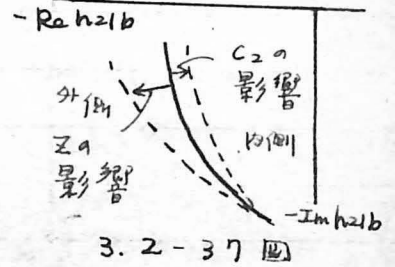 -Re h21b
C2の
影響
外側
内側
Zの
影響
-Im h21b
3.2-37図